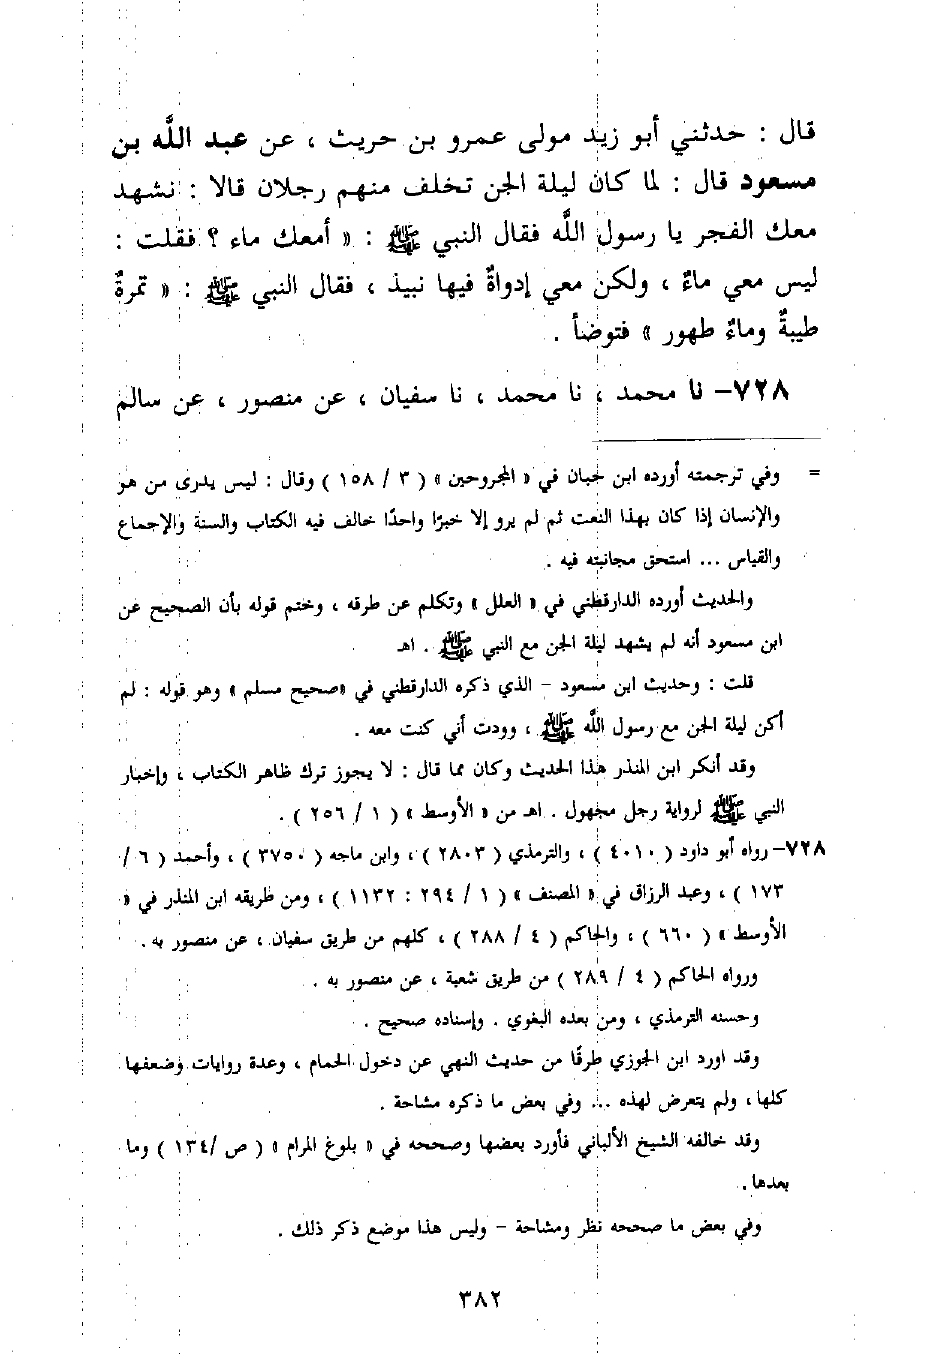 قال : حدثني أبو زيد مولى عمرو بن حريث ، عن عبد اللَّه بن
مسعود قال : لما كان ليلة الجن تخلف منهم رجلان قالا : نشهد
معك الفجر يا رسول اللَّه فقال النبي ﷺ : « أمعك ماء ؟ فقلت :
ليس معي ماءٌ ، ولكن معي إدواةٌ فيها نبيذ ، فقال النبي ﷺ : « تمرةٌ
طيبةٌ وماءٌ طهور » فتوضأ .
٧٢٨- نا محمد ، نا محمد ، نا سفيان ، عن منصور ، عن سالم
= وفي ترجمته أورده ابن حبان في « المجروحين » ( ٣ / ١٥٨ ) وقال : ليس يدرى من هو
والإنسان إذا كان بهذا النعت ثم لم يرو إلا خبرًا واحدًا خالف فيه الكتاب والسنة والإجماع
والقياس ... استحق مجانبته فيه .
والحديث أورده الدارقطني في « العلل » وتكلم عن طرقه ، وختم قوله بأن الصحيح عن
ابن مسعود أنه لم يشهد ليلة الجن مع النبي ﷺ . اهـ
قلت : وحديث ابن مسعود - الذي ذكره الدارقطني في «صحيح مسلم » وهو قوله : لم
أكن ليلة الجن مع رسول اللَّه ﷺ ، وودت أني كنت معه .
وقد أنكر ابن المنذر هذا الحديث وكان مما قال : لا يجوز ترك ظاهر الكتاب ، وإخبار
النبي ﷺ لرواية رجل مجهول . اهـ من « الأوسط » ( ١ / ٢٥٦ ) .
٧٢٨- رواه أبو داود ( ٤٠١٠ ) ، والترمذي ( ٢٨٠٣ ) ، وابن ماجه ( ٣٧٥٠ ) ، وأحمد ( ٦ /
١٧٣ ) ، وعبد الرزاق في « المصنف » ( ١ / ٢٩٤ : ١١٣٢ ) ، ومن طريقه ابن المنذر في «
الأوسط » ( ٦٦٠ ) ، والحاكم ( ٤ / ٢٨٨ ) ، كلهم من طريق سفيان ، عن منصور به .
ورواه الحاكم ( ٤ / ٢٨٩ ) من طريق شعبة ، عن منصور به .
وحسنه الترمذي ، ومن بعده البغوي . وإسناده صحيح .
وقد اورد ابن الجوزي طرقًا من حديث النهي عن دخول الحمام ، وعدة روايات وضعفها
كلها ، ولم يتعرض لهذه ... وفي بعض ما ذكره مشاحة .
وقد خالفه الشيخ الألباني فأورد بعضها وصححه في « بلوغ المرام » ( ص /١٣٤ ) وما
بعدها .
وفي بعض ما صححه نظر ومشاحة - وليس هذا موضع ذكر ذلك .
٣٨٢